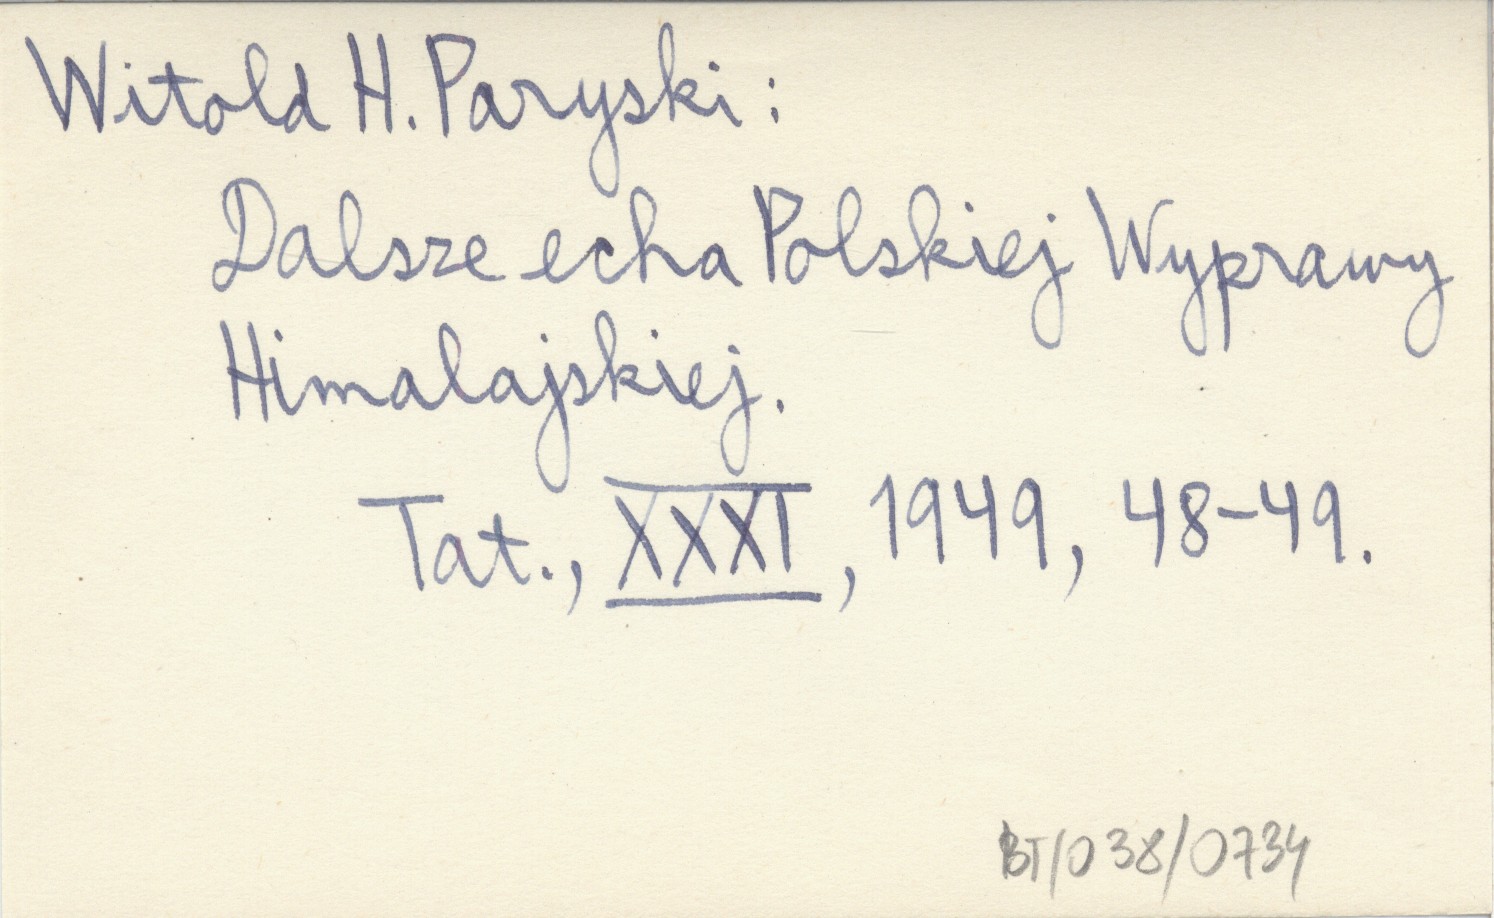 Witold H. Paryski:
Dalsze echa Polskiej Wyprawy
Himalajskiej.
Tat., XXXI, 1949, 48-49.
BT/038/0734